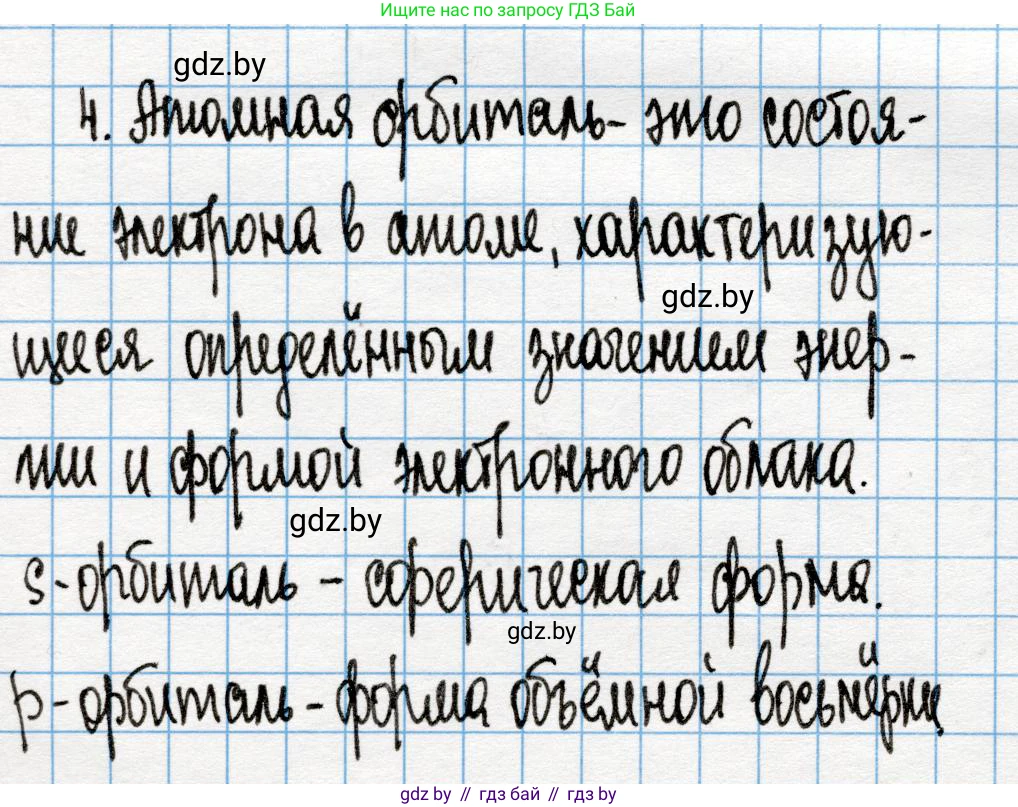 Ищите нас по запросу ГДЗ Бай
gdz.by
4. Атомная орбиталь- это состоя-
ние электрона в атоме, характеризую-
gdz.by
щееся определённым значением энер-
гии и формой электронного облака.
gdz.by
s-орбиталь - сферическая форма.
gdz.by
p-орбиталь - форма объёмной восьмёрки
gdz.by // гдз бай // гдз by